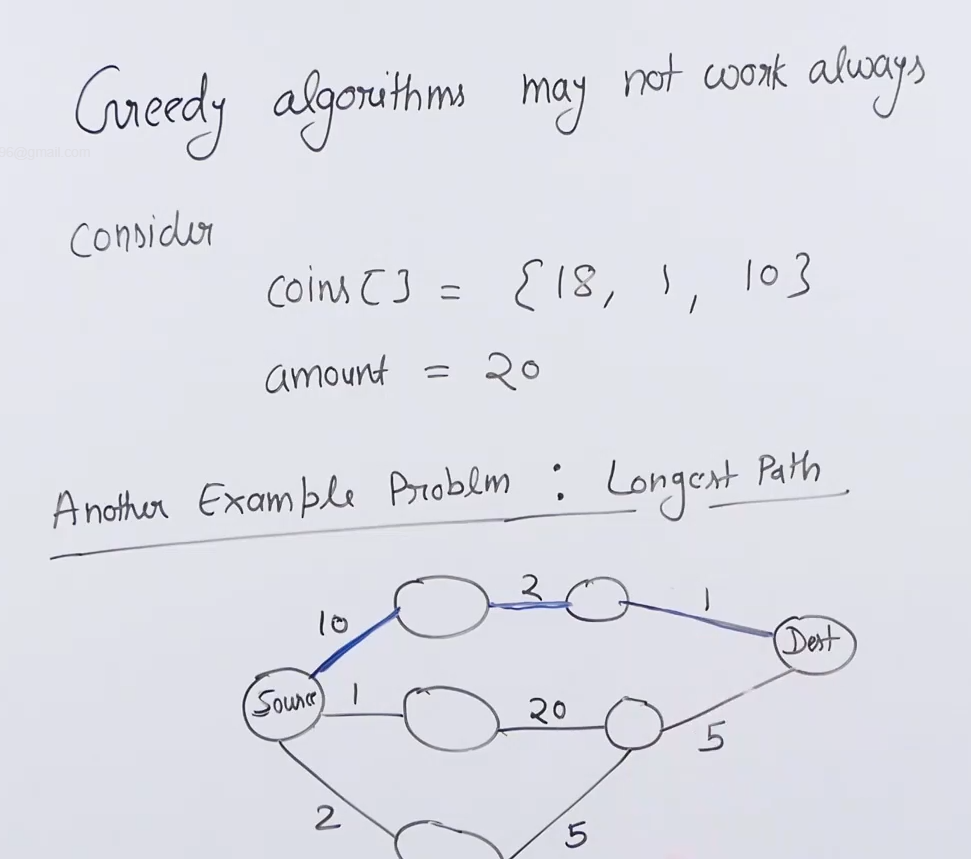 Greedy algorithms may not work always
36@gmail.com
consider
coins[] = {18, 1, 10}
amount = 20
Another Example Problm : Longest Path
10 2 1
Dest
Source 1 20
5
2 5